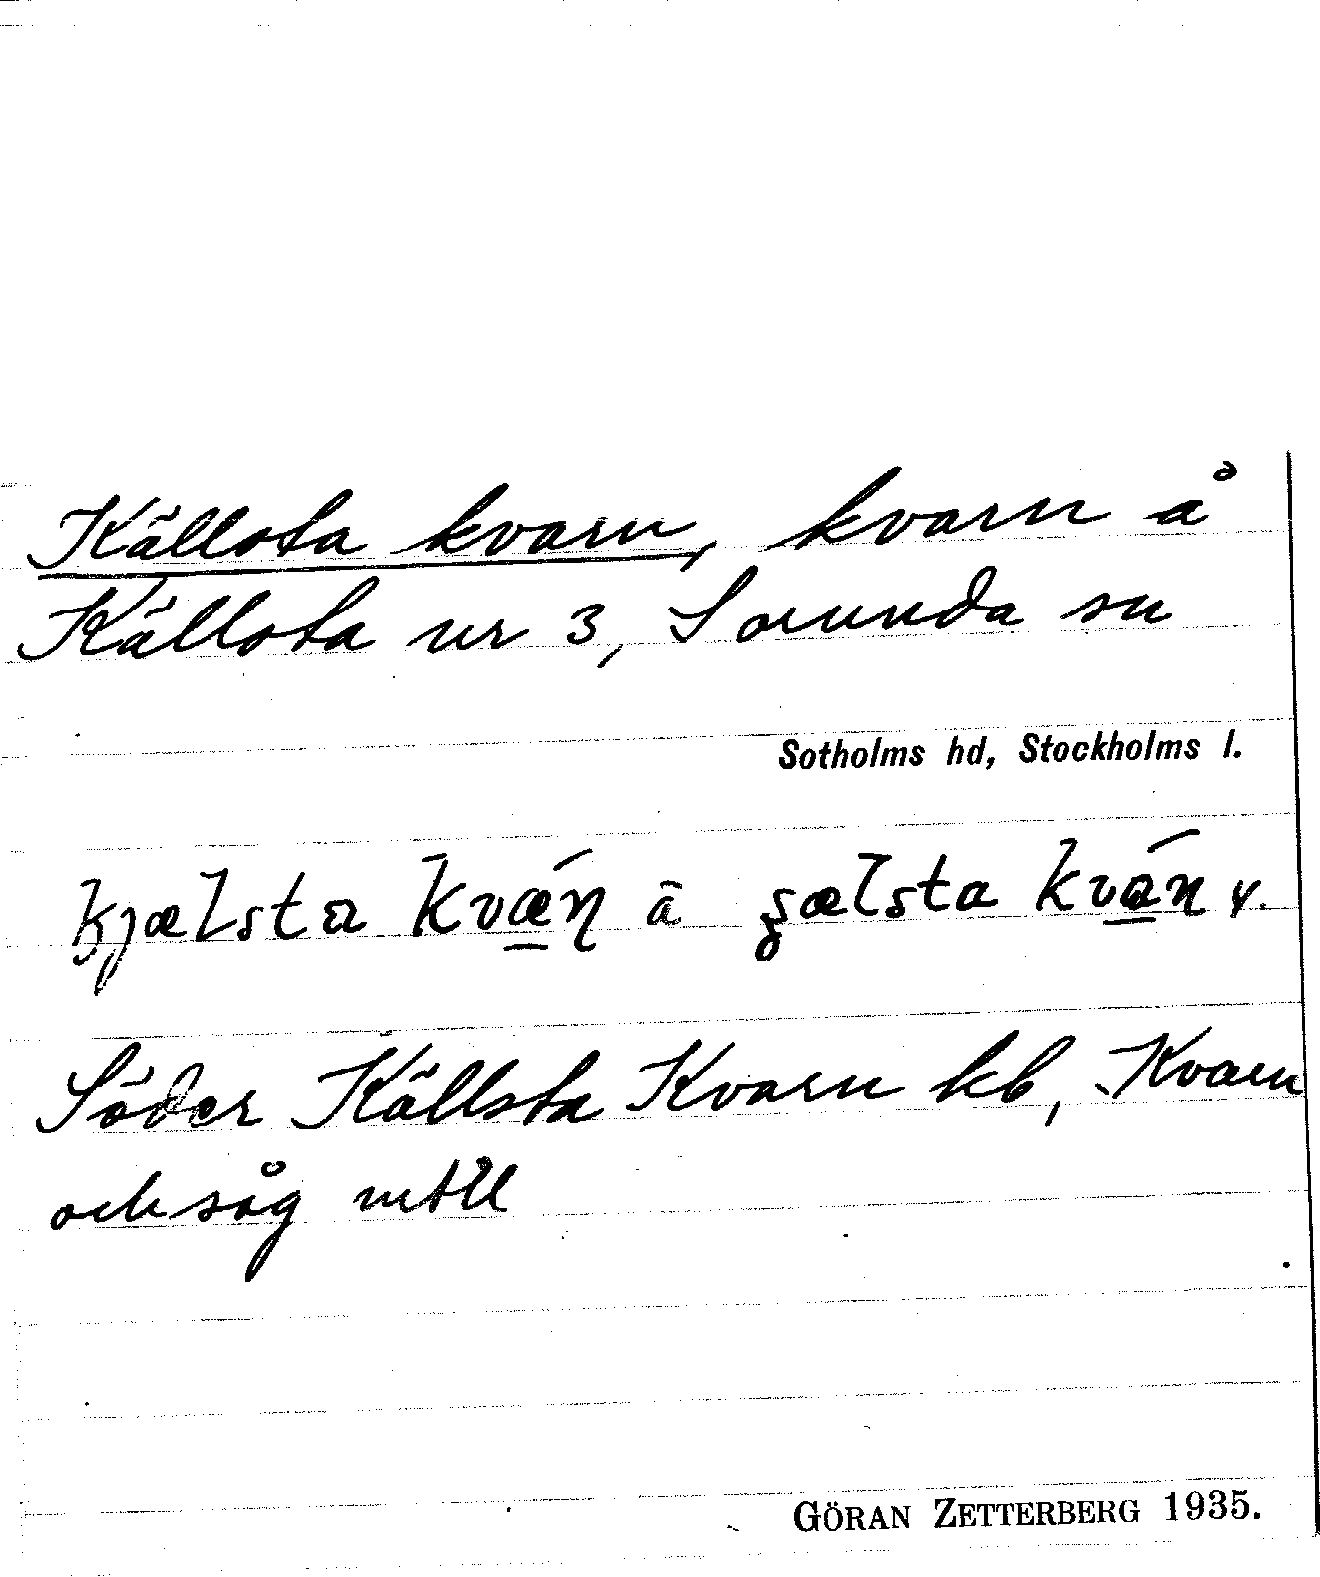 Källsta kvarn, kvarn å
Källsta nr 3, Sorunda sn
Sotholms hd, Stockholms l.
kjælsta kvǽn ā şælsta kván v.
Söder Källsta Kvarn kb, Kvarn
och såg mtll
GÖRAN ZETTERBERG 1935.